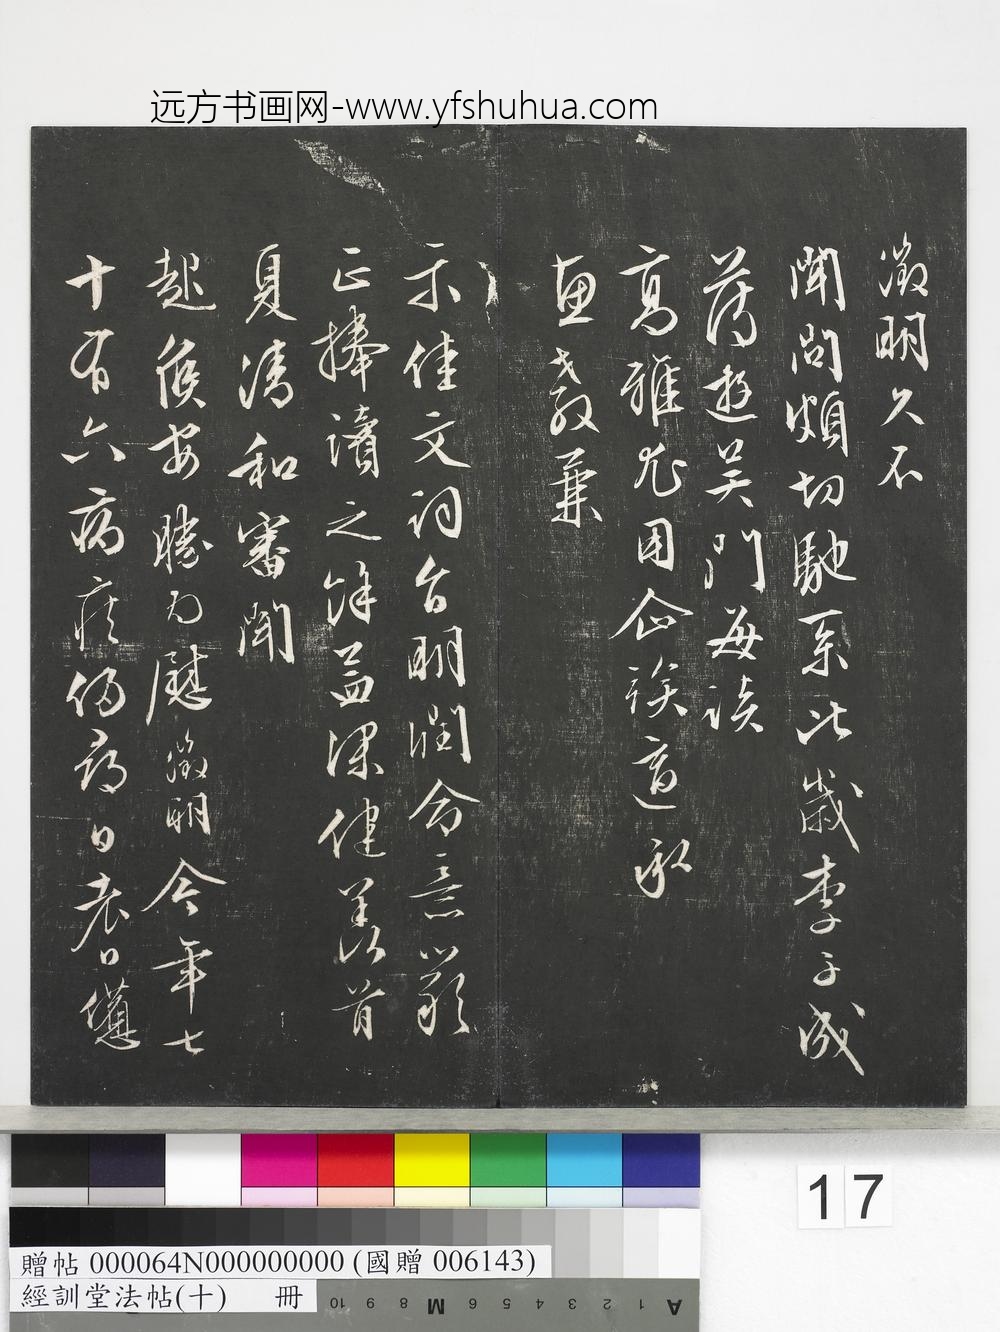 远方书画网-www.yfshuhua.com
徵明久不
聞問頗切馳系比歲李子成
薄遊吴門每談
高雅尤用企誒適承
惠教兼
示佳文詞旨明潤命意嚴
正捧讀之餘益深健羨首
夏清和審聞
起居安勝为慰徵明今年七
十有六病疾侵尋日老日憊
17
贈帖 000064N000000000 (國贈 006143)
經訓堂法帖(十) 冊
10 9 8 M 6 5 4 3 2 1 A